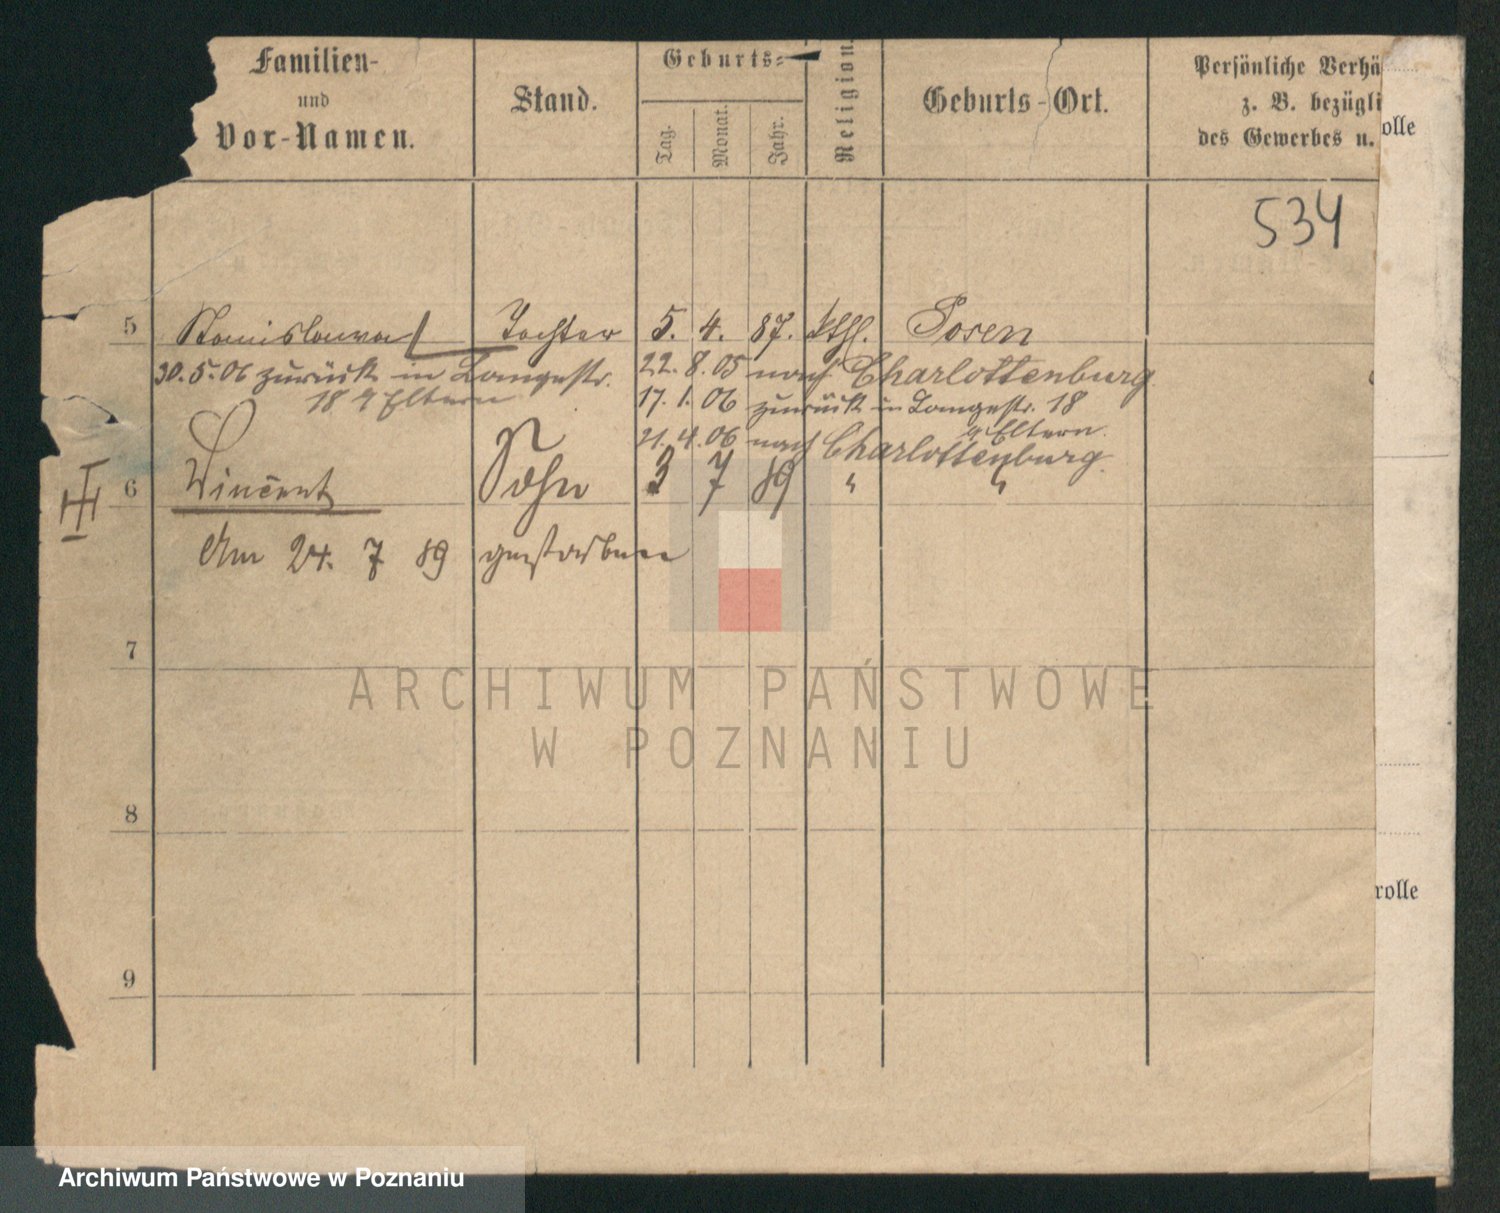 Familien-
und
Vor-Namen.
Stand.
Geburts-
Tag.
Monat.
Jahr.
Religion.
Geburts-Ort.
Persönliche Verhä
z. B. bezügli
des Gewerbes u.
olle
534
5 Stanislawa Tochter 5. 4. 87. kthl. Posen
30. 5. 06 zurück in Langestr.
18 Eltern
22. 8. 05 nach Charlottenburg
17. 1. 06 zurück in Langestr. 18
Eltern.
21. 4. 06 nach Charlottenburg.
6 Vincent Sohn 3 7 89 " "
III
Am 24. 7 89 gestorben
7
ARCHIWUM PAŃSTWOWE
W POZNANIU
8
rolle
9
Archiwum Państwowe w Poznaniu